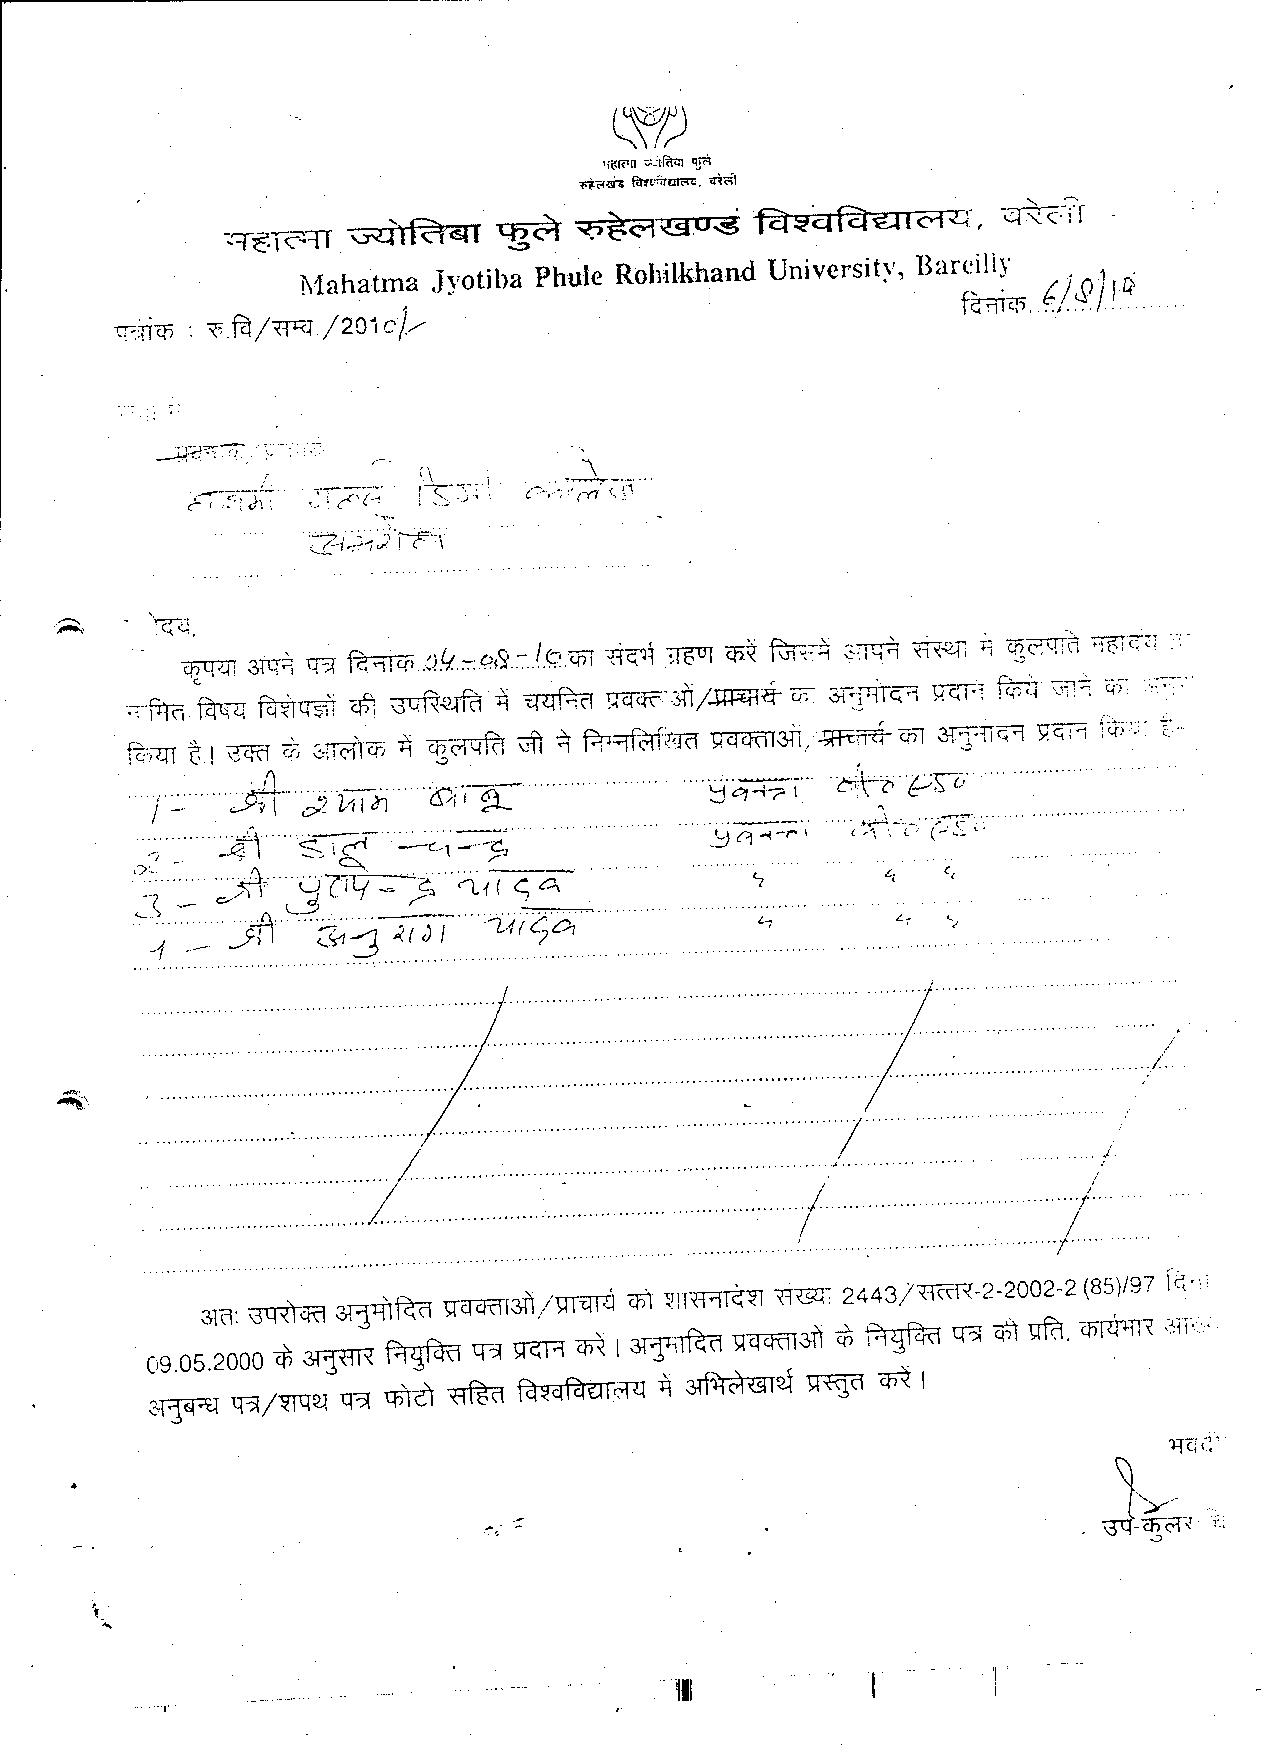 महात्मा ज्योतिबा फुले
रुहेलखंड विश्वविद्यालय, बरेली
महात्मा ज्योतिबा फुले रुहेलखण्ड विश्वविद्यालय, बरेली
Mahatma Jyotiba Phule Rohilkhand University, Bareilly
दिनांक. 6/8/10
पत्रांक : रु.वि/सम्ब./2010/-
डिग्री कालेज
कृपया अपने पत्र दिनांक 04-08-10 का संदर्भ ग्रहण करें जिसमें आपने संस्था में कुलपति महोदय
नामित विषय विशेषज्ञों की उपस्थिति में चयनित प्रवक्ताओं/प्राचार्य का अनुमोदन प्रदान किये जाने का
किया है। उक्त के आलोक में कुलपति जी ने निम्नलिखित प्रवक्ताओं/प्राचार्य का अनुमोदन प्रदान किया है-
1- श्री श्याम बाबू प्रवक्ता बी० एड०
2- श्री डालू चन्द्र प्रवक्ता बी० एड०
3- श्री यादव " " "
4- श्री अनुराग यादव " " "
अतः उपरोक्त अनुमोदित प्रवक्ताओं/प्राचार्य को शासनादेश संख्या 2443/सत्तर-2-2002-2 (85)/97
09.05.2000 के अनुसार नियुक्ति पत्र प्रदान करें। अनुमोदित प्रवक्ताओं के नियुक्ति पत्र की प्रति, कार्यभार
अनुबन्ध पत्र/शपथ पत्र फोटो सहित विश्वविद्यालय में अभिलेखार्थ प्रस्तुत करें।